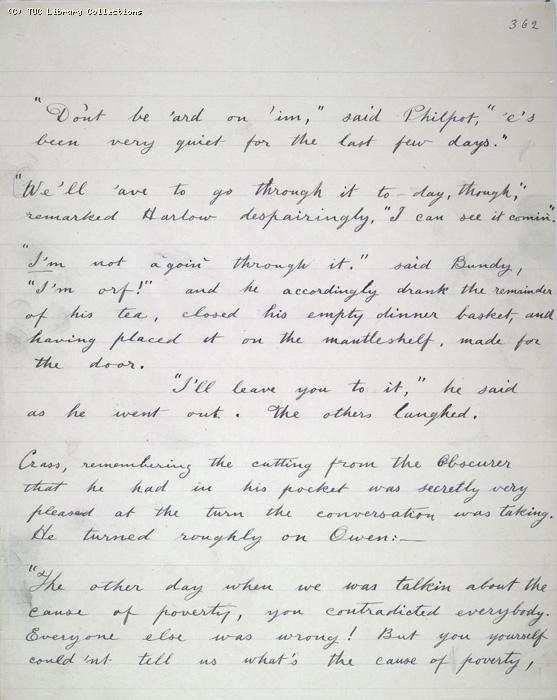 (C) TUC Library Collections
362
"Don't be 'ard on 'im," said Philpot, "'e's
been very quiet for the last few days."
"We'll 'ave to go through it to-day, though,"
remarked Harlow despairingly, "I can see it comin'."
"I'm not a'goin' through it." said Bundy,
"I'm orf!" and he accordingly drank the remainder
of his tea, closed his empty dinner basket, and
having placed it on the mantleshelf, made for
the door.
"I'll leave you to it," he said
as he went out. The others laughed.
Crass, remembering the cutting from the Obscurer
that he had in his pocket was secretly very
pleased at the turn the conversation was taking.
He turned roughly on Owen:—
"The other day when we was talkin about the
cause of poverty, you contradicted everybody.
Everyone else was wrong! But you yourself
could'nt tell us what's the cause of poverty,